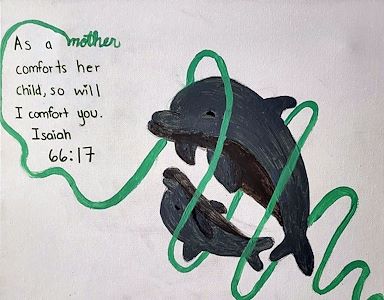 As a mother
comforts her
child, so will
I comfort you.
Isaiah
66:17